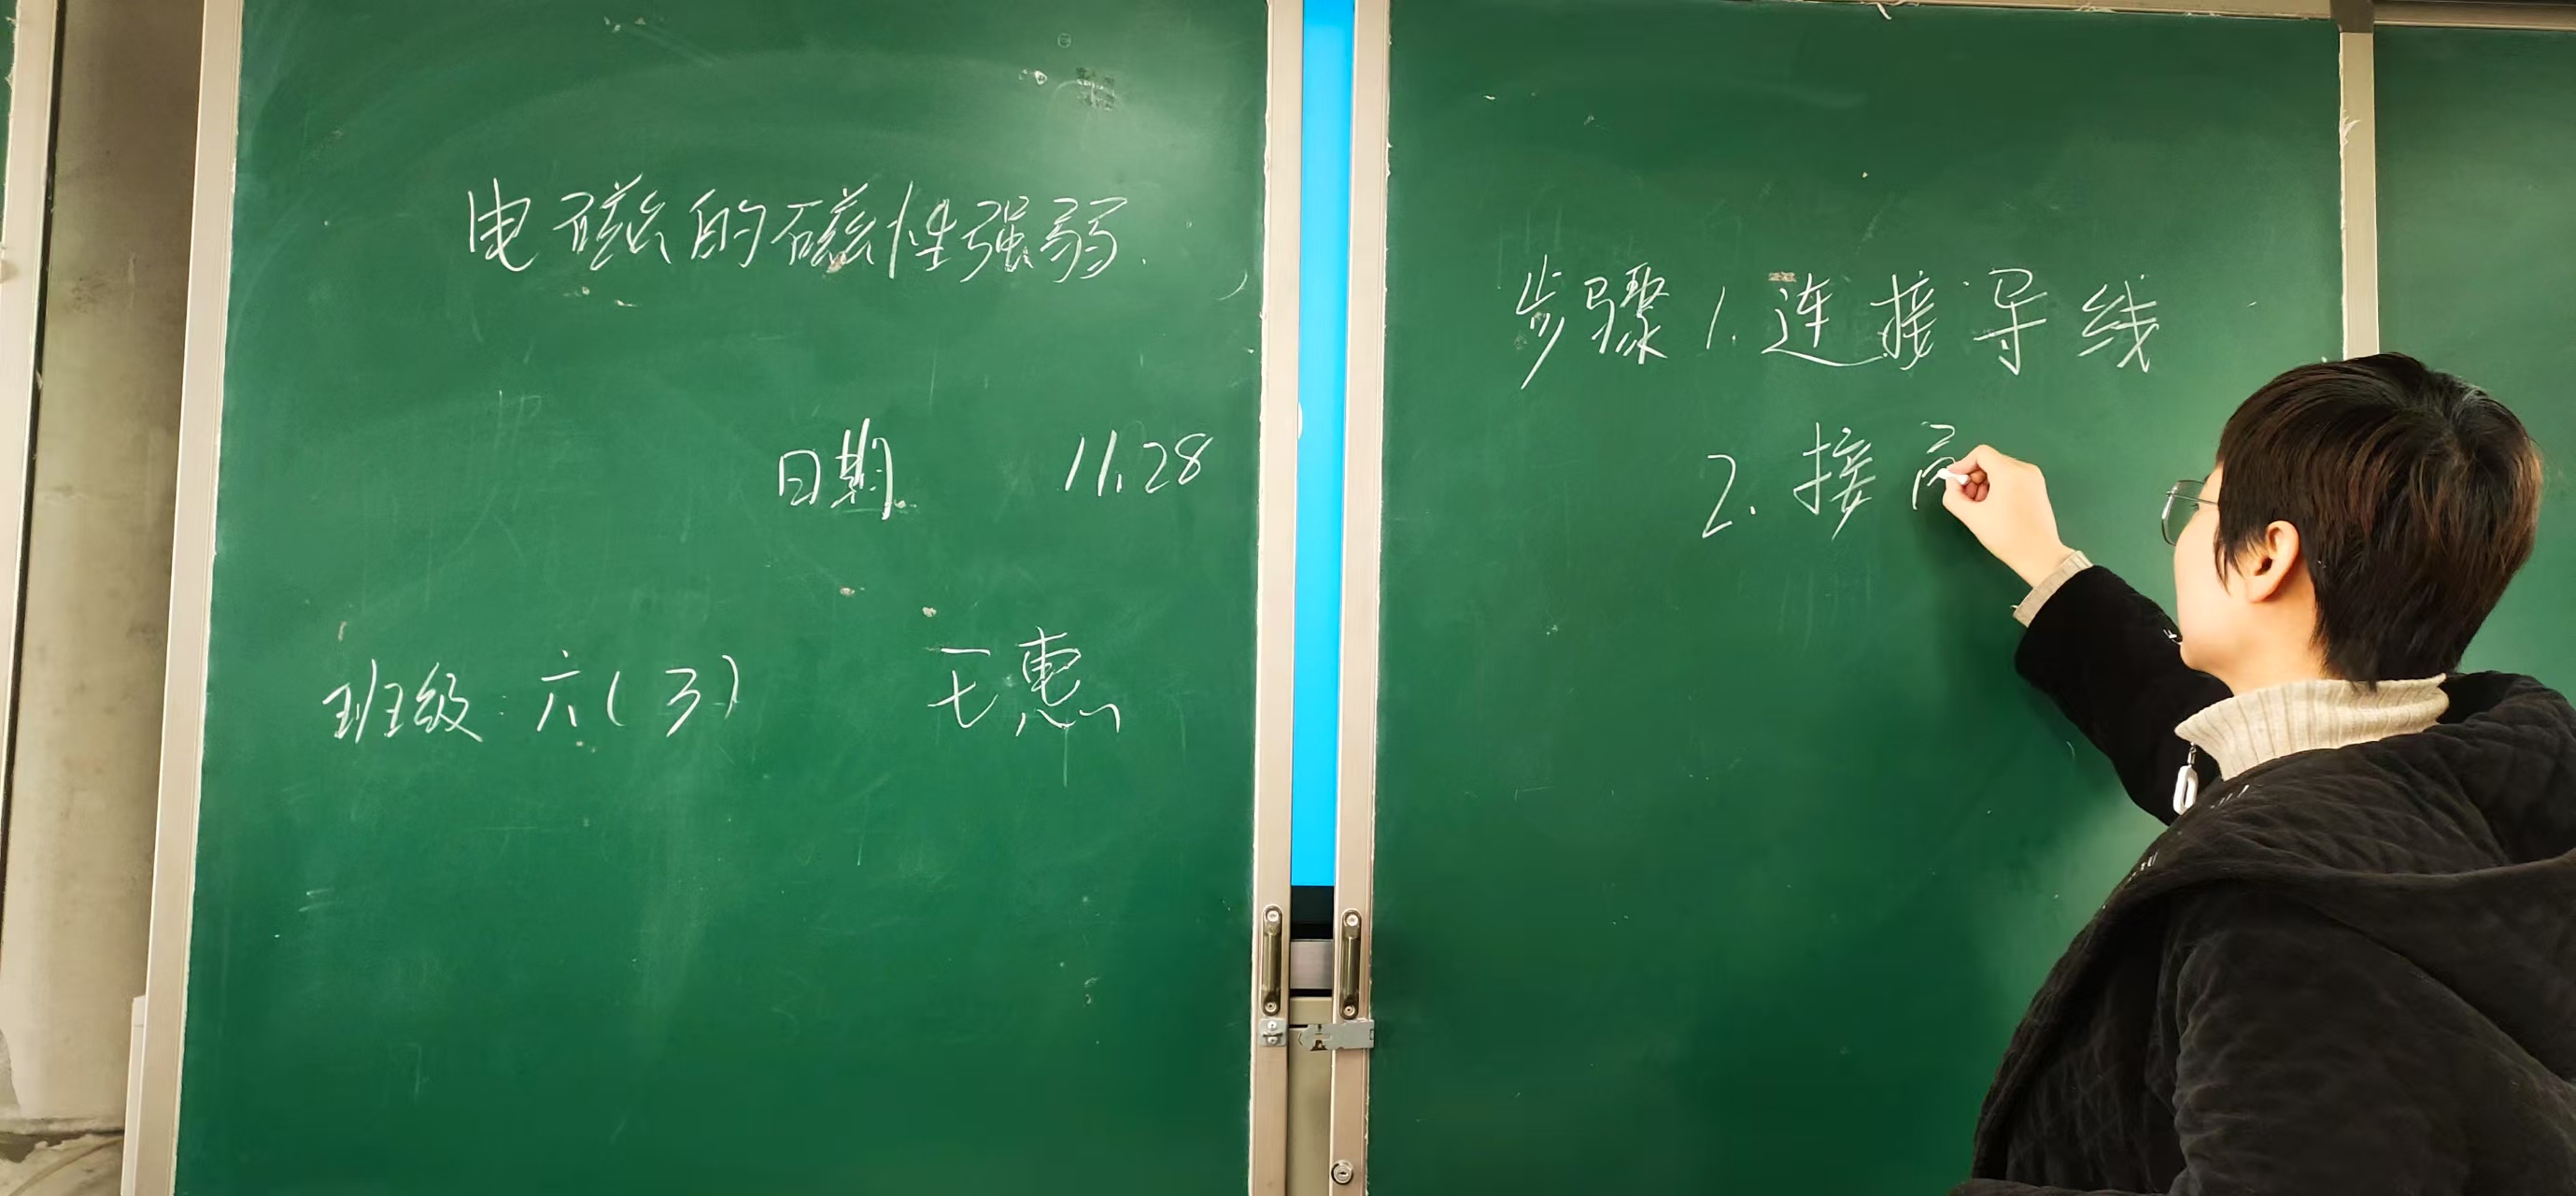 电磁的磁性强弱.
日期 11.28
班级:六(3) 王惠
步骤 1.连接导线
2.接